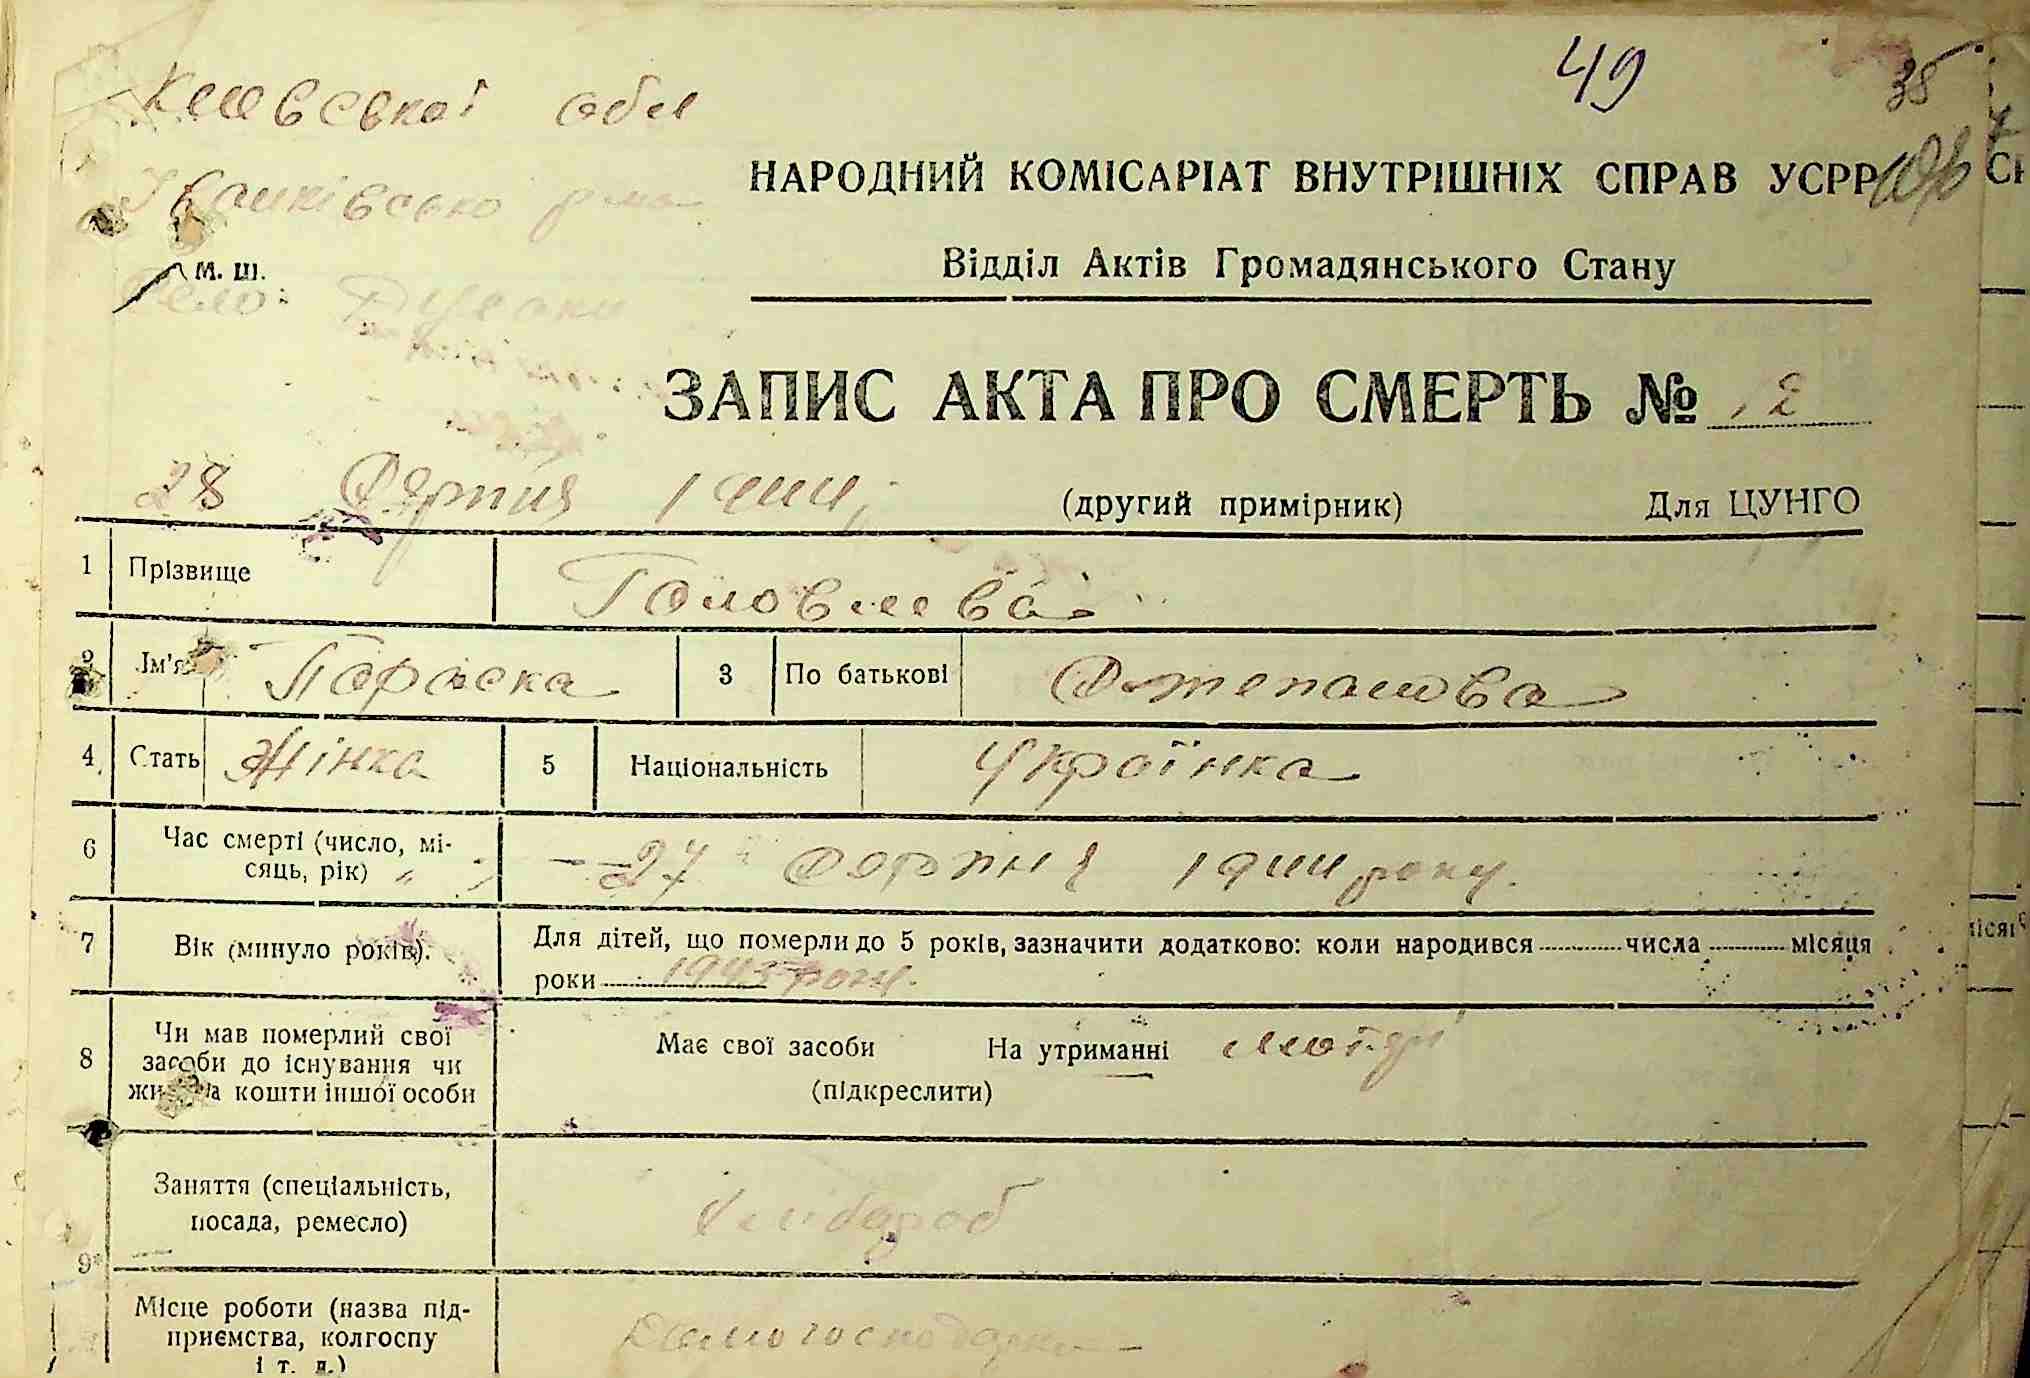 49 38
Київської обл
Іванківсько р-на
НАРОДНИЙ КОМІСАРІАТ ВНУТРІШНІХ СПРАВ УСРР
Відділ Актів Громадянського Стану
М. Ш.
Село:
ЗАПИС АКТА ПРО СМЕРТЬ № 12
28 Серпня 1944
(другий примірник) Для ЦУНГО
1 Прізвище
2 Ім'я Параска 3 По батькові Степанова
4 Стать Жінка 5 Національність Українка
6 Час смерті (число, мі-
сяць, рік) 27 Серпня 1944 року.
7 Вік (минуло років). Для дітей, що померли до 5 років, зазначити додатково: коли народився числа місяця
роки 1943 року.
8 Чи мав померлий свої
засоби до існування чи
жив на кошти іншої особи
Має свої засоби На утриманні
(підкреслити)
9 Заняття (спеціальність,
посада, ремесло) Хлібороб
Місце роботи (назва під-
приємства, колгоспу
і т. д.)